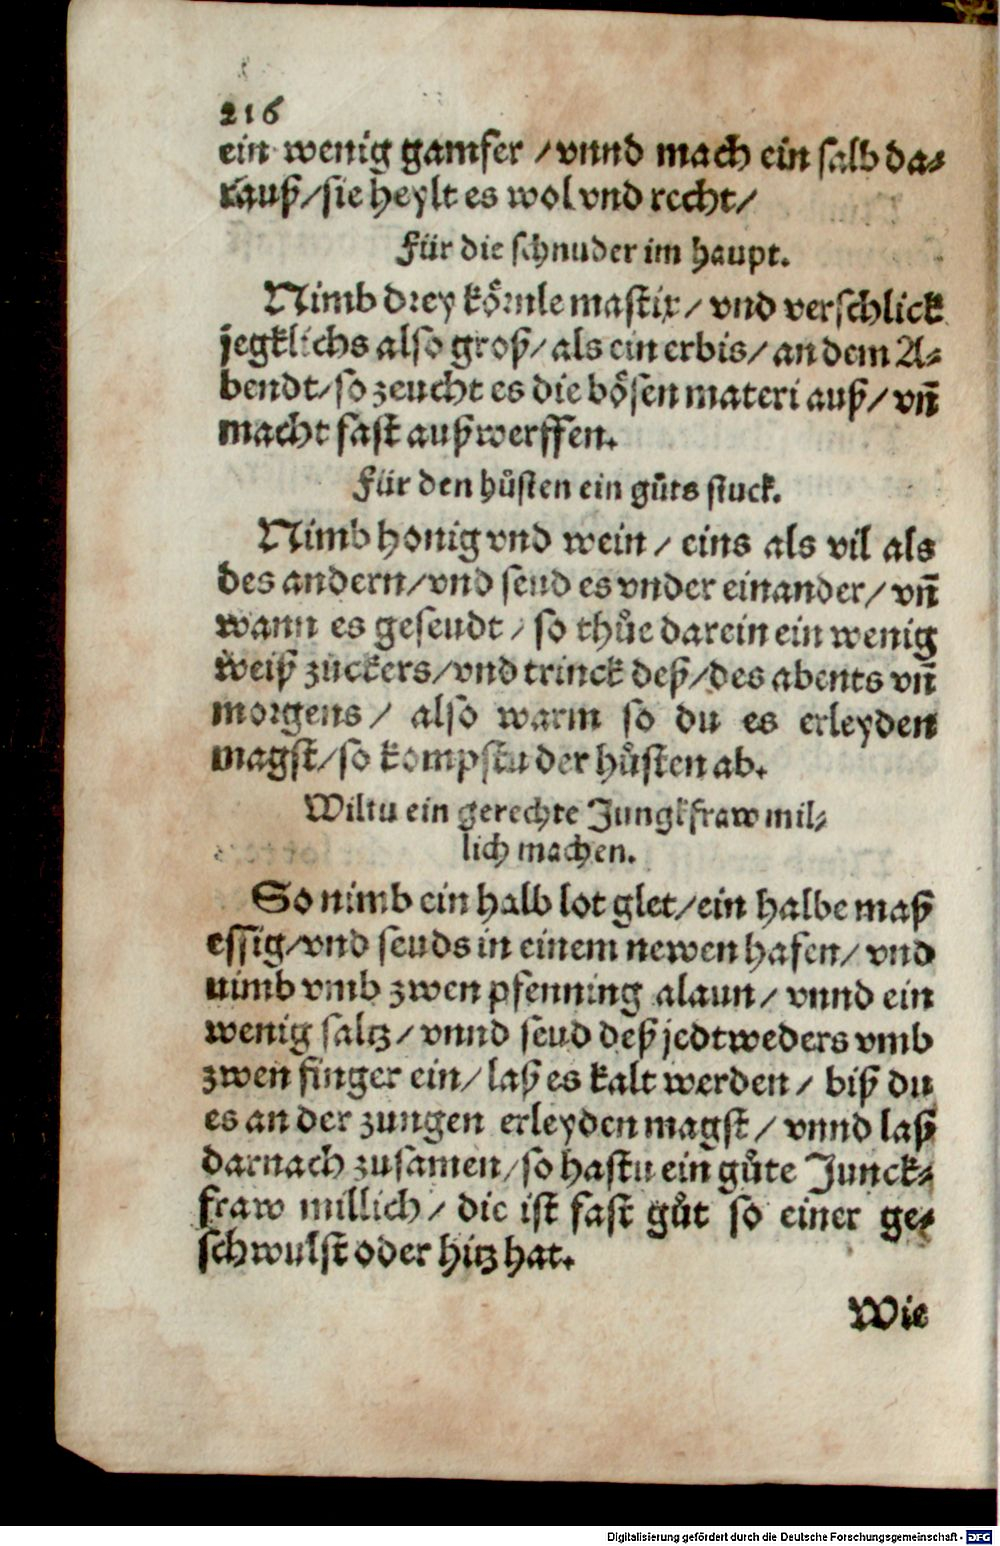 216
ein wenig gamfer / vnnd mach ein salb da-
rauß / sie heylt es wol vnd recht /
Für die schnuder im haupt.
Nimb drey körnle mastix / vnd verschlick
jegklichs also groß / als ein erbis / an dem A-
bendt / so zeucht es die bösen materi auß / vn̄
macht fast außwerffen.
Für den hůsten ein gůts stuck.
Nimb honig vnd wein / eins als vil als
des andern / vnd seud es vnder einander / vn̄
wann es geseudt / so thůe darein ein wenig
weiß zuckers / vnd trinck deß / des abents vn̄
morgens / also warm so du es erleyden
magst / so kompstu der hůsten ab.
Wiltu ein gerechte Jungkfraw mil-
lich machen.
So nimb ein halb lot glet / ein halbe maß
essig / vnd seuds in einem newen hafen / vnd
nimb vmb zwen pfenning alaun / vnnd ein
wenig saltz / vnnd seud deß jedtweders vmb
zwen finger ein / laß es kalt werden / biß du
es an der zungen erleyden magst / vnnd laß
darnach zusamen / so hastu ein gůte Junck-
fraw millich / die ist fast gůt so einer ge-
schwulst oder hitz hat.
Wie
Digitalisierung gefördert durch die Deutsche Forschungsgemeinschaft - DFG